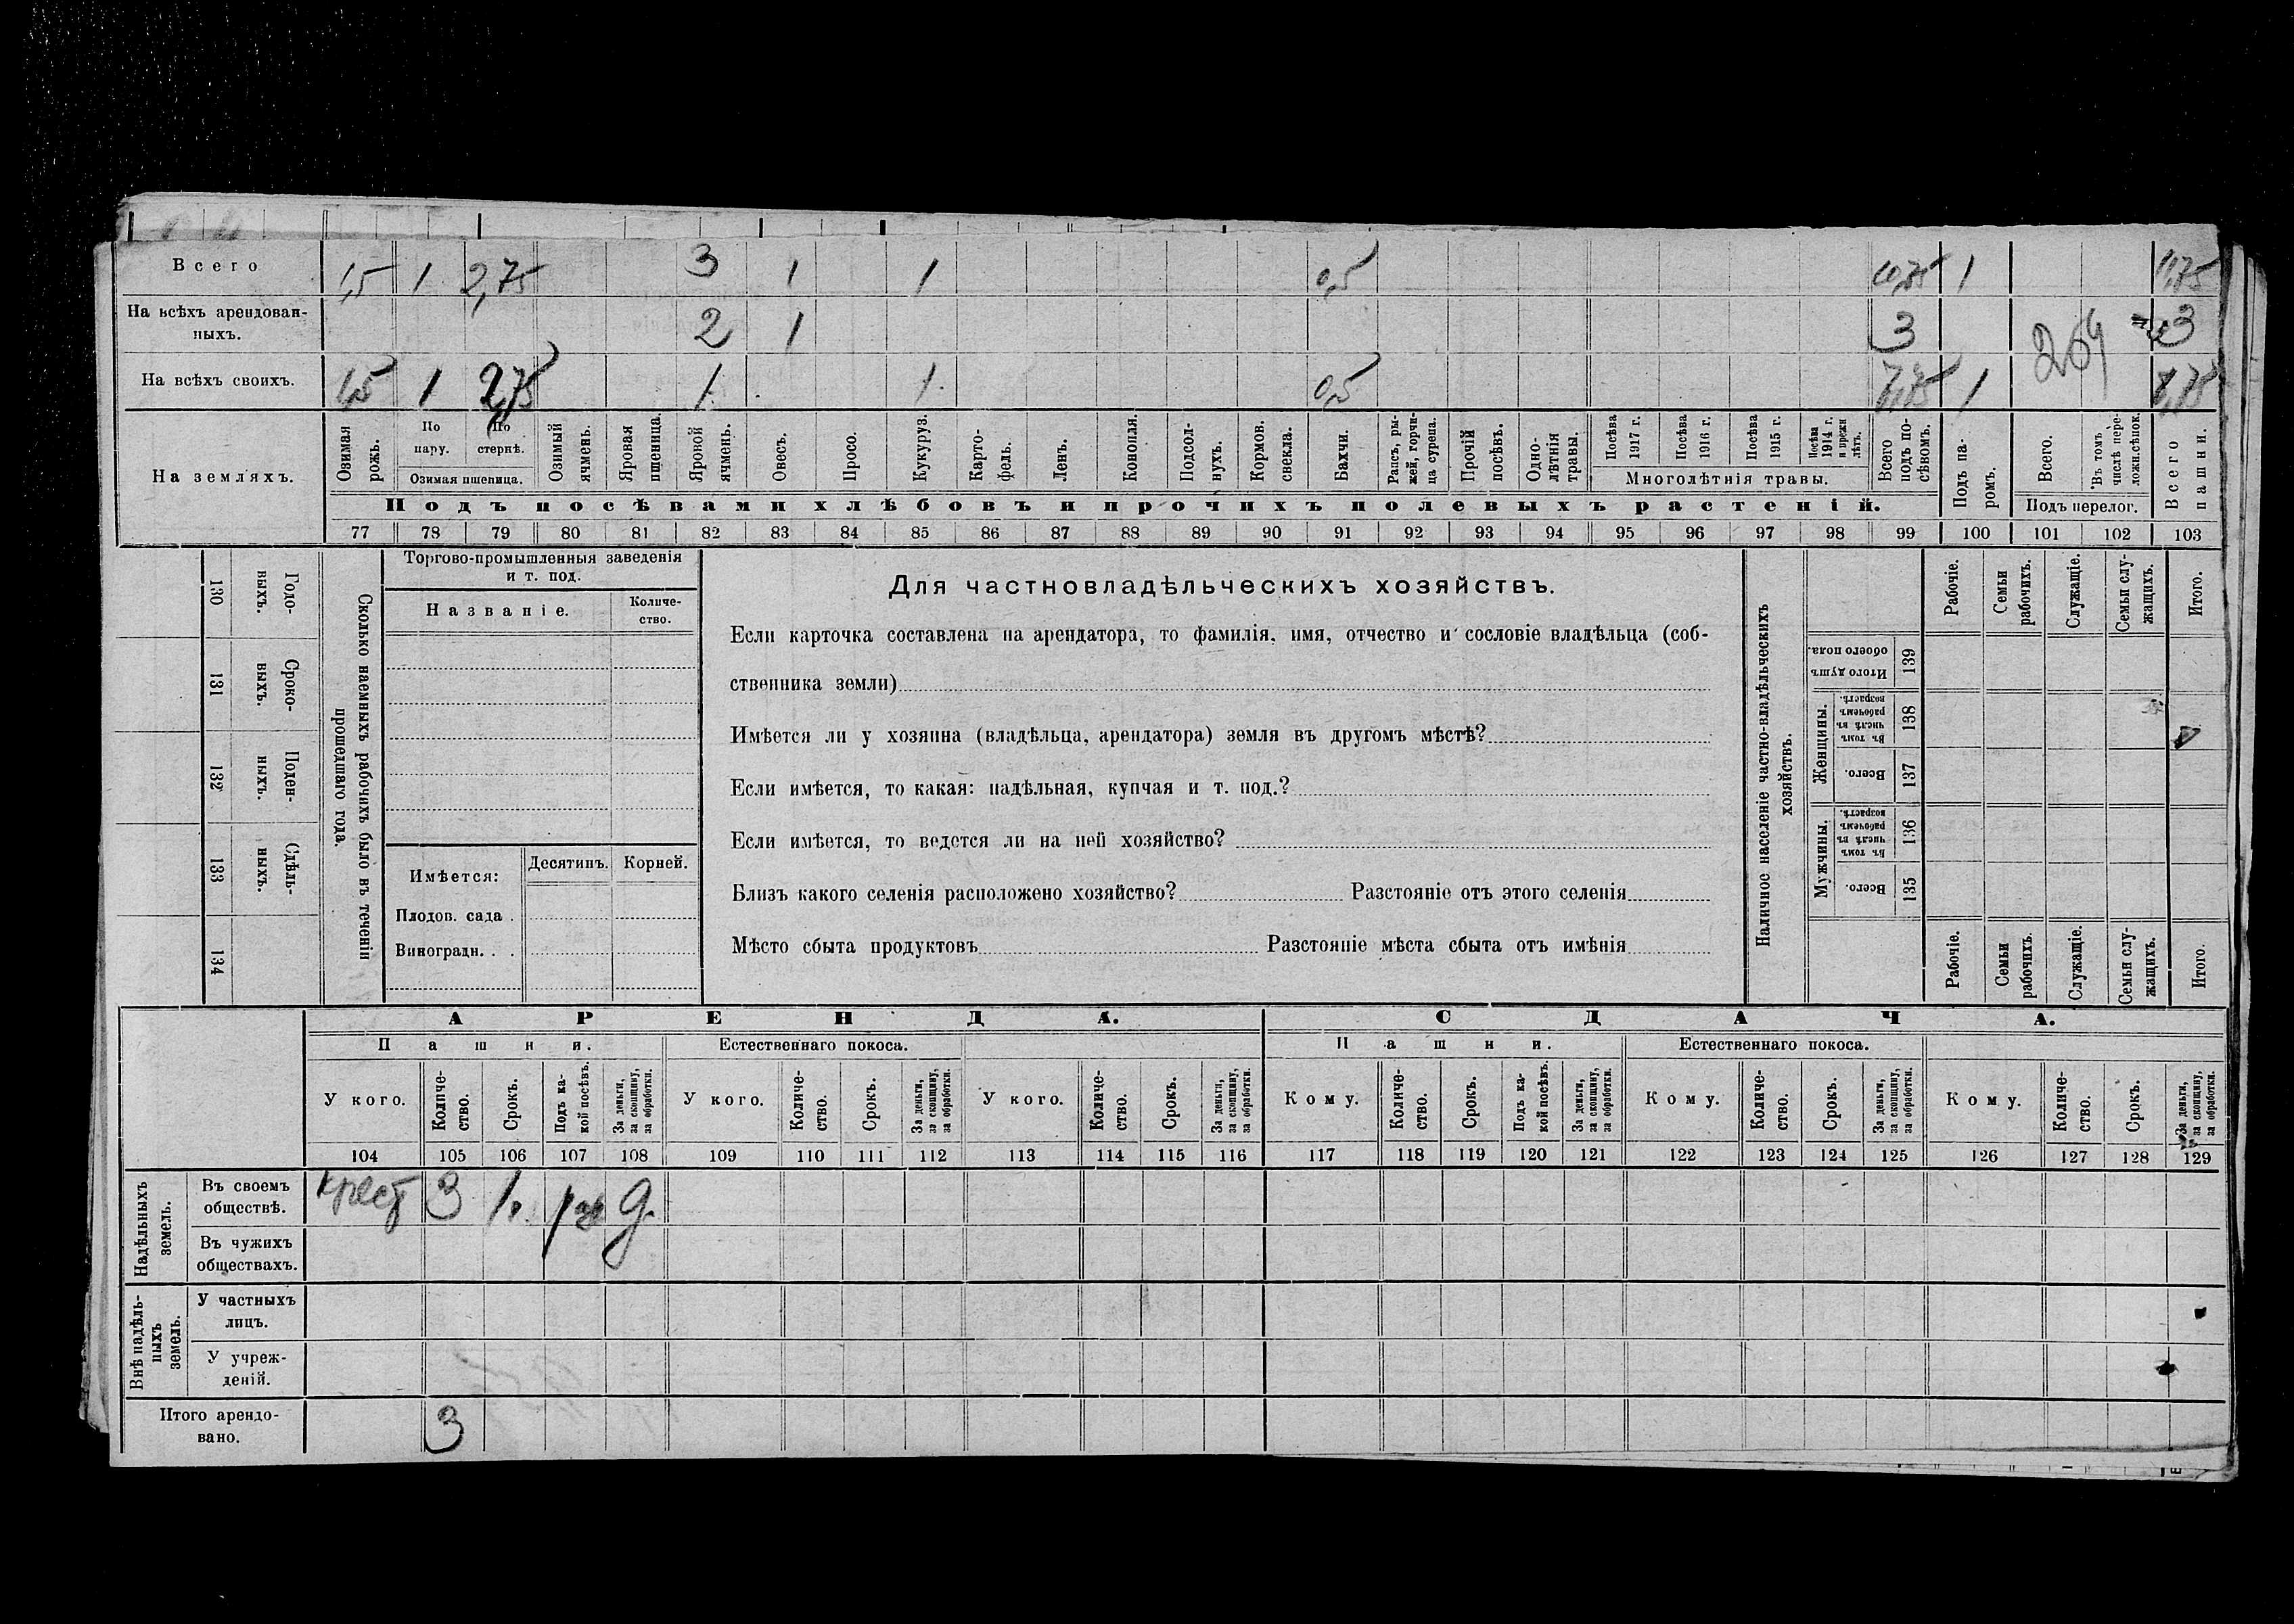 Всего 1,5 1 2,75 3 1 1 0,5 10,75 1 11,75
На всѣхъ арендован-
ныхъ. 2 1 3 3
264
На всѣхъ своихъ. 1,5 1 2,75 1 1 0,5 7,75 1 8,75
На земляхъ.
Озимая рожь.
По пару.
По стернѣ.
Озимая пшеница.
Озимый ячмень.
Яровая пшеница.
Яровой ячмень.
Овесъ.
Просо.
Кукуруз.
Карто-
фель.
Ленъ.
Конопля.
Подсол-
нухъ.
Кормов. свекла.
Бахчи.
Рапсъ, ры-
жей, горчи-
ца сурепа.
Прочій посѣвъ.
Одно-
лѣтнія травы.
Посѣва 1917 г.
Посѣва 1916 г.
Посѣва 1915 г.
Посѣва 1914 г. и прежн лѣтъ.
Многолѣтнія травы.
Всего подъ по-
сѣвомъ.
Подъ па-
ромъ.
Всего.
Въ томъ числѣ пере-
ложн.сѣнок.
Подъ перелог.
Всего пашни.
Подъ посѣвами хлѣбовъ и прочихъ полевыхъ растеній.
77 78 79 80 81 82 83 84 85 86 87 88 89 90 91 92 93 94 95 96 97 98 99 100 101 102 103
Сколько наемныхъ рабочихъ было въ теченіи
прошедшаго года.
Годо-
выхъ.
130
Сроко-
выхъ.
131
Поден-
ныхъ.
132
Сдѣль-
ныхъ.
133
134
Торгово-промышленныя заведенія
и т. под.
Названіе.
Количе-
ство.
Имѣется: Десятинъ. Корней.
Плодов. сада .
Виноградн. . .
Для частновладѣльческихъ хозяйствъ.
Если карточка составлена на арендатора, то фамилія, имя, отчество и сословіе владѣльца (соб-
ственника земли)
Имѣется ли у хозяина (владѣльца, арендатора) земля въ другомъ мѣстѣ?
Если имѣется, то какая: надѣльная, купчая и т. под.?
Если имѣется, то ведется ли на ней хозяйство?
Близъ какого селенія расположено хозяйство? Разстояніе отъ этого селенія
Мѣсто сбыта продуктовъ Разстояніе мѣста сбыта отъ имѣнія
Наличное населеніе частно-владѣльческихъ
хозяйствъ.
Рабочіе.
Семьи рабочихъ.
Служащіе.
Семьи слу-
жащихъ.
Итого.
Итого душъ обоего пола.
139
Женщины.
Въ томъ числѣ въ рабочемъ возрастѣ.
138
Всего.
137
Мужчины.
Въ томъ числѣ въ рабочемъ возрастѣ.
136
Всего.
135
Рабочіе.
Семьи рабочихъ.
Служащіе.
Семьи слу-
жащихъ.
Итого.
АРЕНДА. СДАЧА.
Пашни. Естественнаго покоса. Пашни. Естественнаго покоса.
У кого.
Количе-
ство.
Срокъ.
Подъ ка-
кой посѣвъ.
За деньги, за скопщину, за обработки.
У кого.
Количе-
ство.
Срокъ.
За деньги, за скопщину, за обработки.
У кого.
Количе-
ство.
Срокъ.
За деньги, за скопщину, за обработки.
Кому.
Количе-
ство.
Срокъ.
Подъ ка-
кой посѣвъ.
За деньги, за скопщину, за обработки.
Кому.
Количе-
ство.
Срокъ.
За деньги, за скопщину, за обработки.
Кому.
Количе-
ство.
Срокъ.
За деньги, за скопщину, за обработки.
104 105 106 107 108 109 110 111 112 113 114 115 116 117 118 119 120 121 122 123 124 125 126 127 128 129
Надѣльныхъ
земель.
Въ своемъ
обществѣ. крест 3 1 г. д.
Въ чужихъ
обществахъ.
Внѣ надѣль-
ныхъ
земель.
У частныхъ
лицъ.
У учреж-
деній.
Итого арендо-
вано. 3